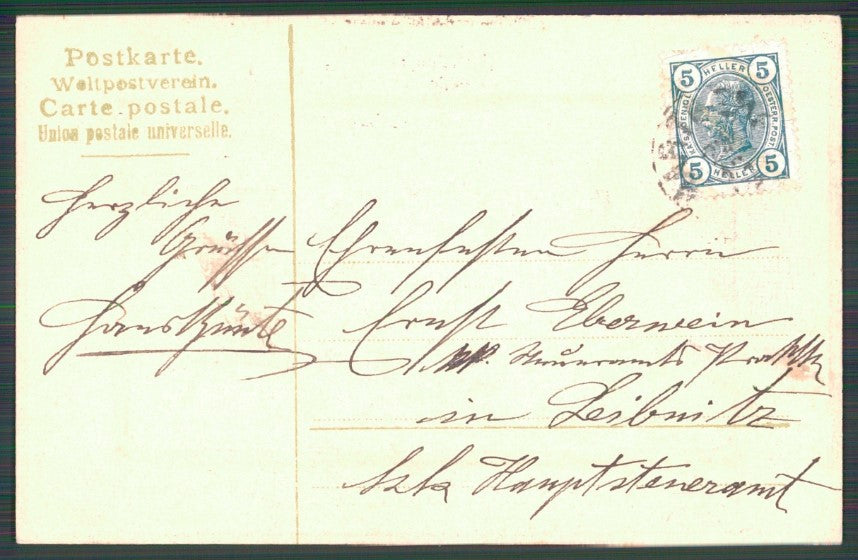 Postkarte.
Weltpostverein.
Carte postale.
Union postale universelle.
5 HELLER 5
KAIS. KÖNIGL. OESTERR. POST.
5 HELLER 5
Herzliche
Grüsse
Hans
Ehrenfesten Herrn
Ernst Eberwein
Steueramts
in Leibnitz
Hauptsteueramt